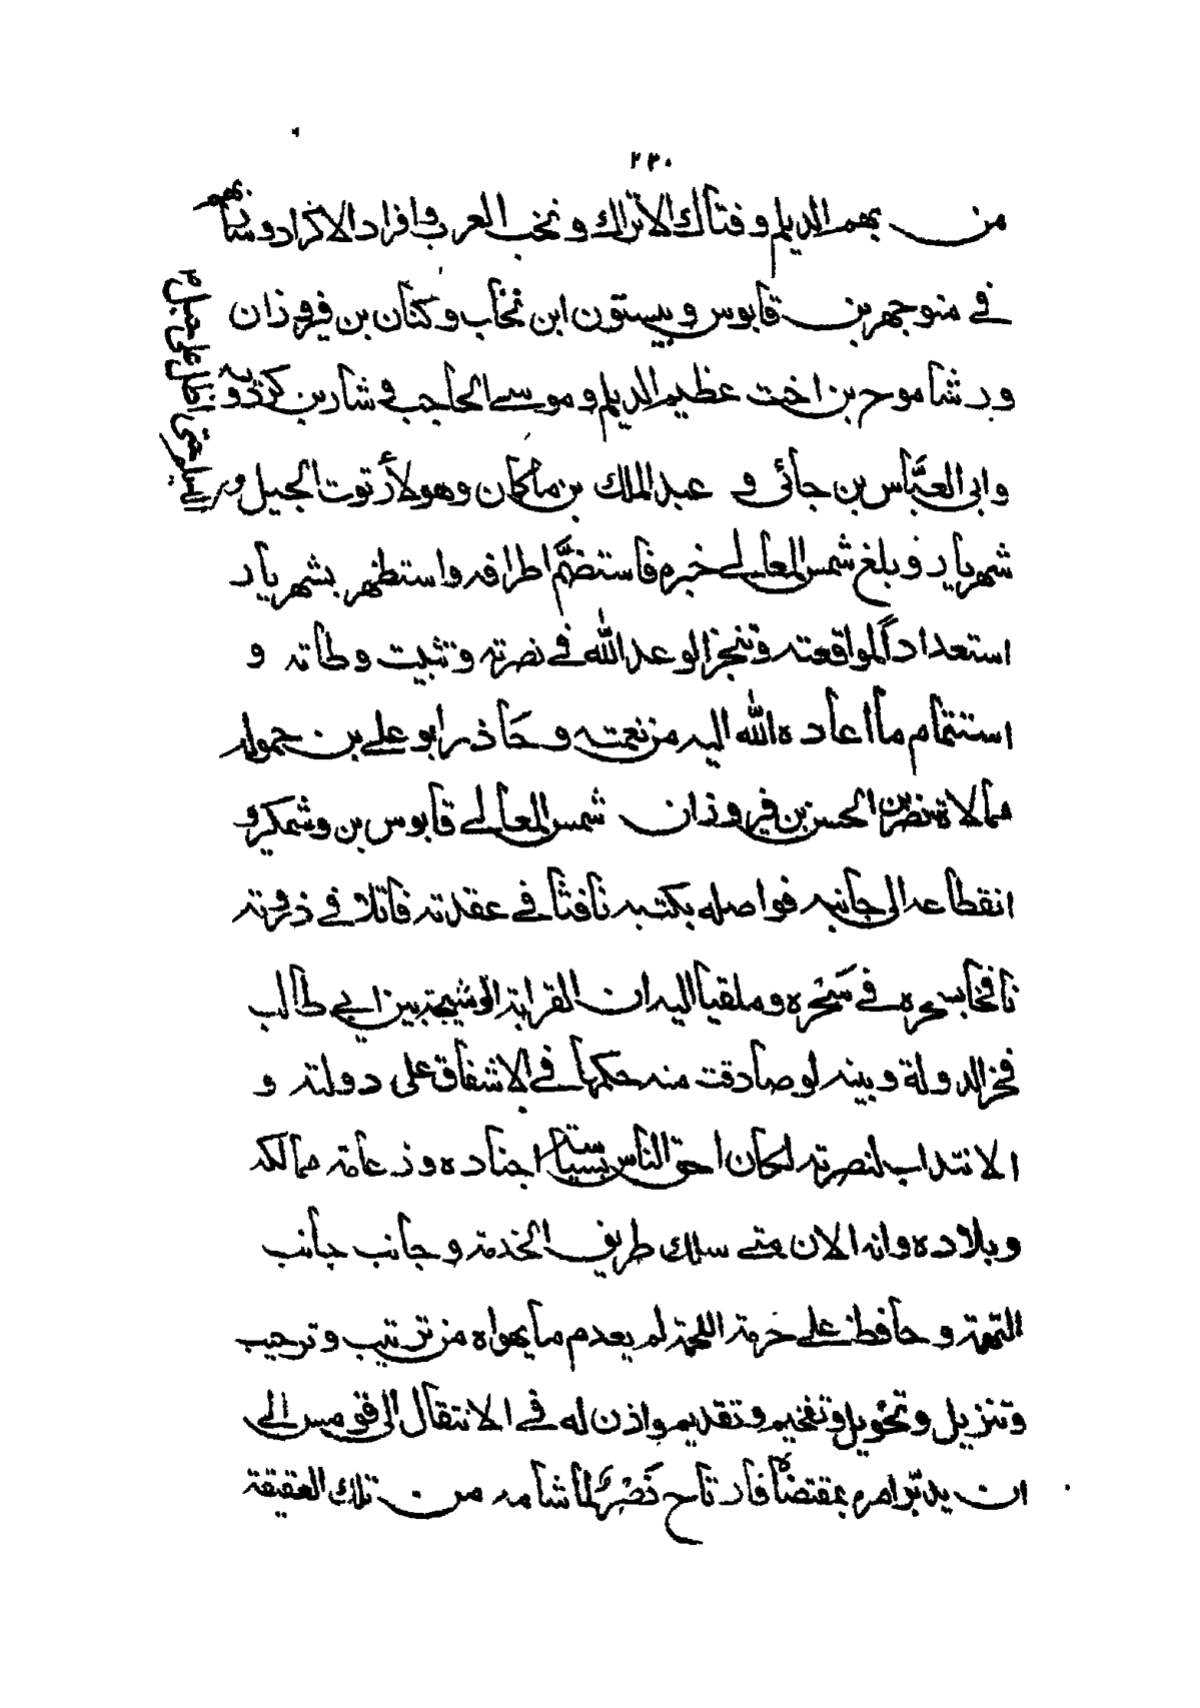 ٢٣٠
من بهم الديلم وفتاك الاتراك ونخب العرب وافراد الاكراد وسار بهم
في منوجهر بن قابوس وبيستون ابن نجاب وكنان بن فيروزان
ورشاموج بن اخت عظيم الديلم وموسى الحاجب في شار بن كردويه
وابى العبَّاس بن جائى و عبد الملك بن ماكان وهولاء توت الجيل و
حتى اطل على جبل
شهريار وبلغ شمس المعالي خبره فاستضمَّ اطرافه واستظهر بشهريار
استعداداً لمواقعته وتنجز الوعد الله في نصرته وتثبيت وطاته و
استتمام ما اعاده الله اليه من نعمته وحَاذر ابو علي بن حموله
ممالاة نصر بن الحسن بن فيروزان شمس المعالي قابوس بن وشمكير و
انقطاعه الى جانبه فواصله بكتبه نافثا في عقدته فاتلا في ذروته
نافخا بسحره في سَحْره وملقيا اليه ان القرابة الوشيجة بين ابي طالب
فخر الدولة وبينه لو صادقت منه حكمها في الاشفاق على دولته و
الانتداب لنصرته لكان احق الناس بسياسة اجناده وزعامة ممالكه
وبلاده وانه الان متى سلك طريق الخدمة وجانب جانب
التهمة وحافظ على حرمة اللحمة لم يعدم ما يهواه من ترتيب وترحيب
وتنزيل وتخويل وتفخيم وتقديم واذن له في الانتقال الى قومس الى
ان يدبّر امره بمقتضاه فارتاح نَصْرٌ لما شامه من تلك العقيقة